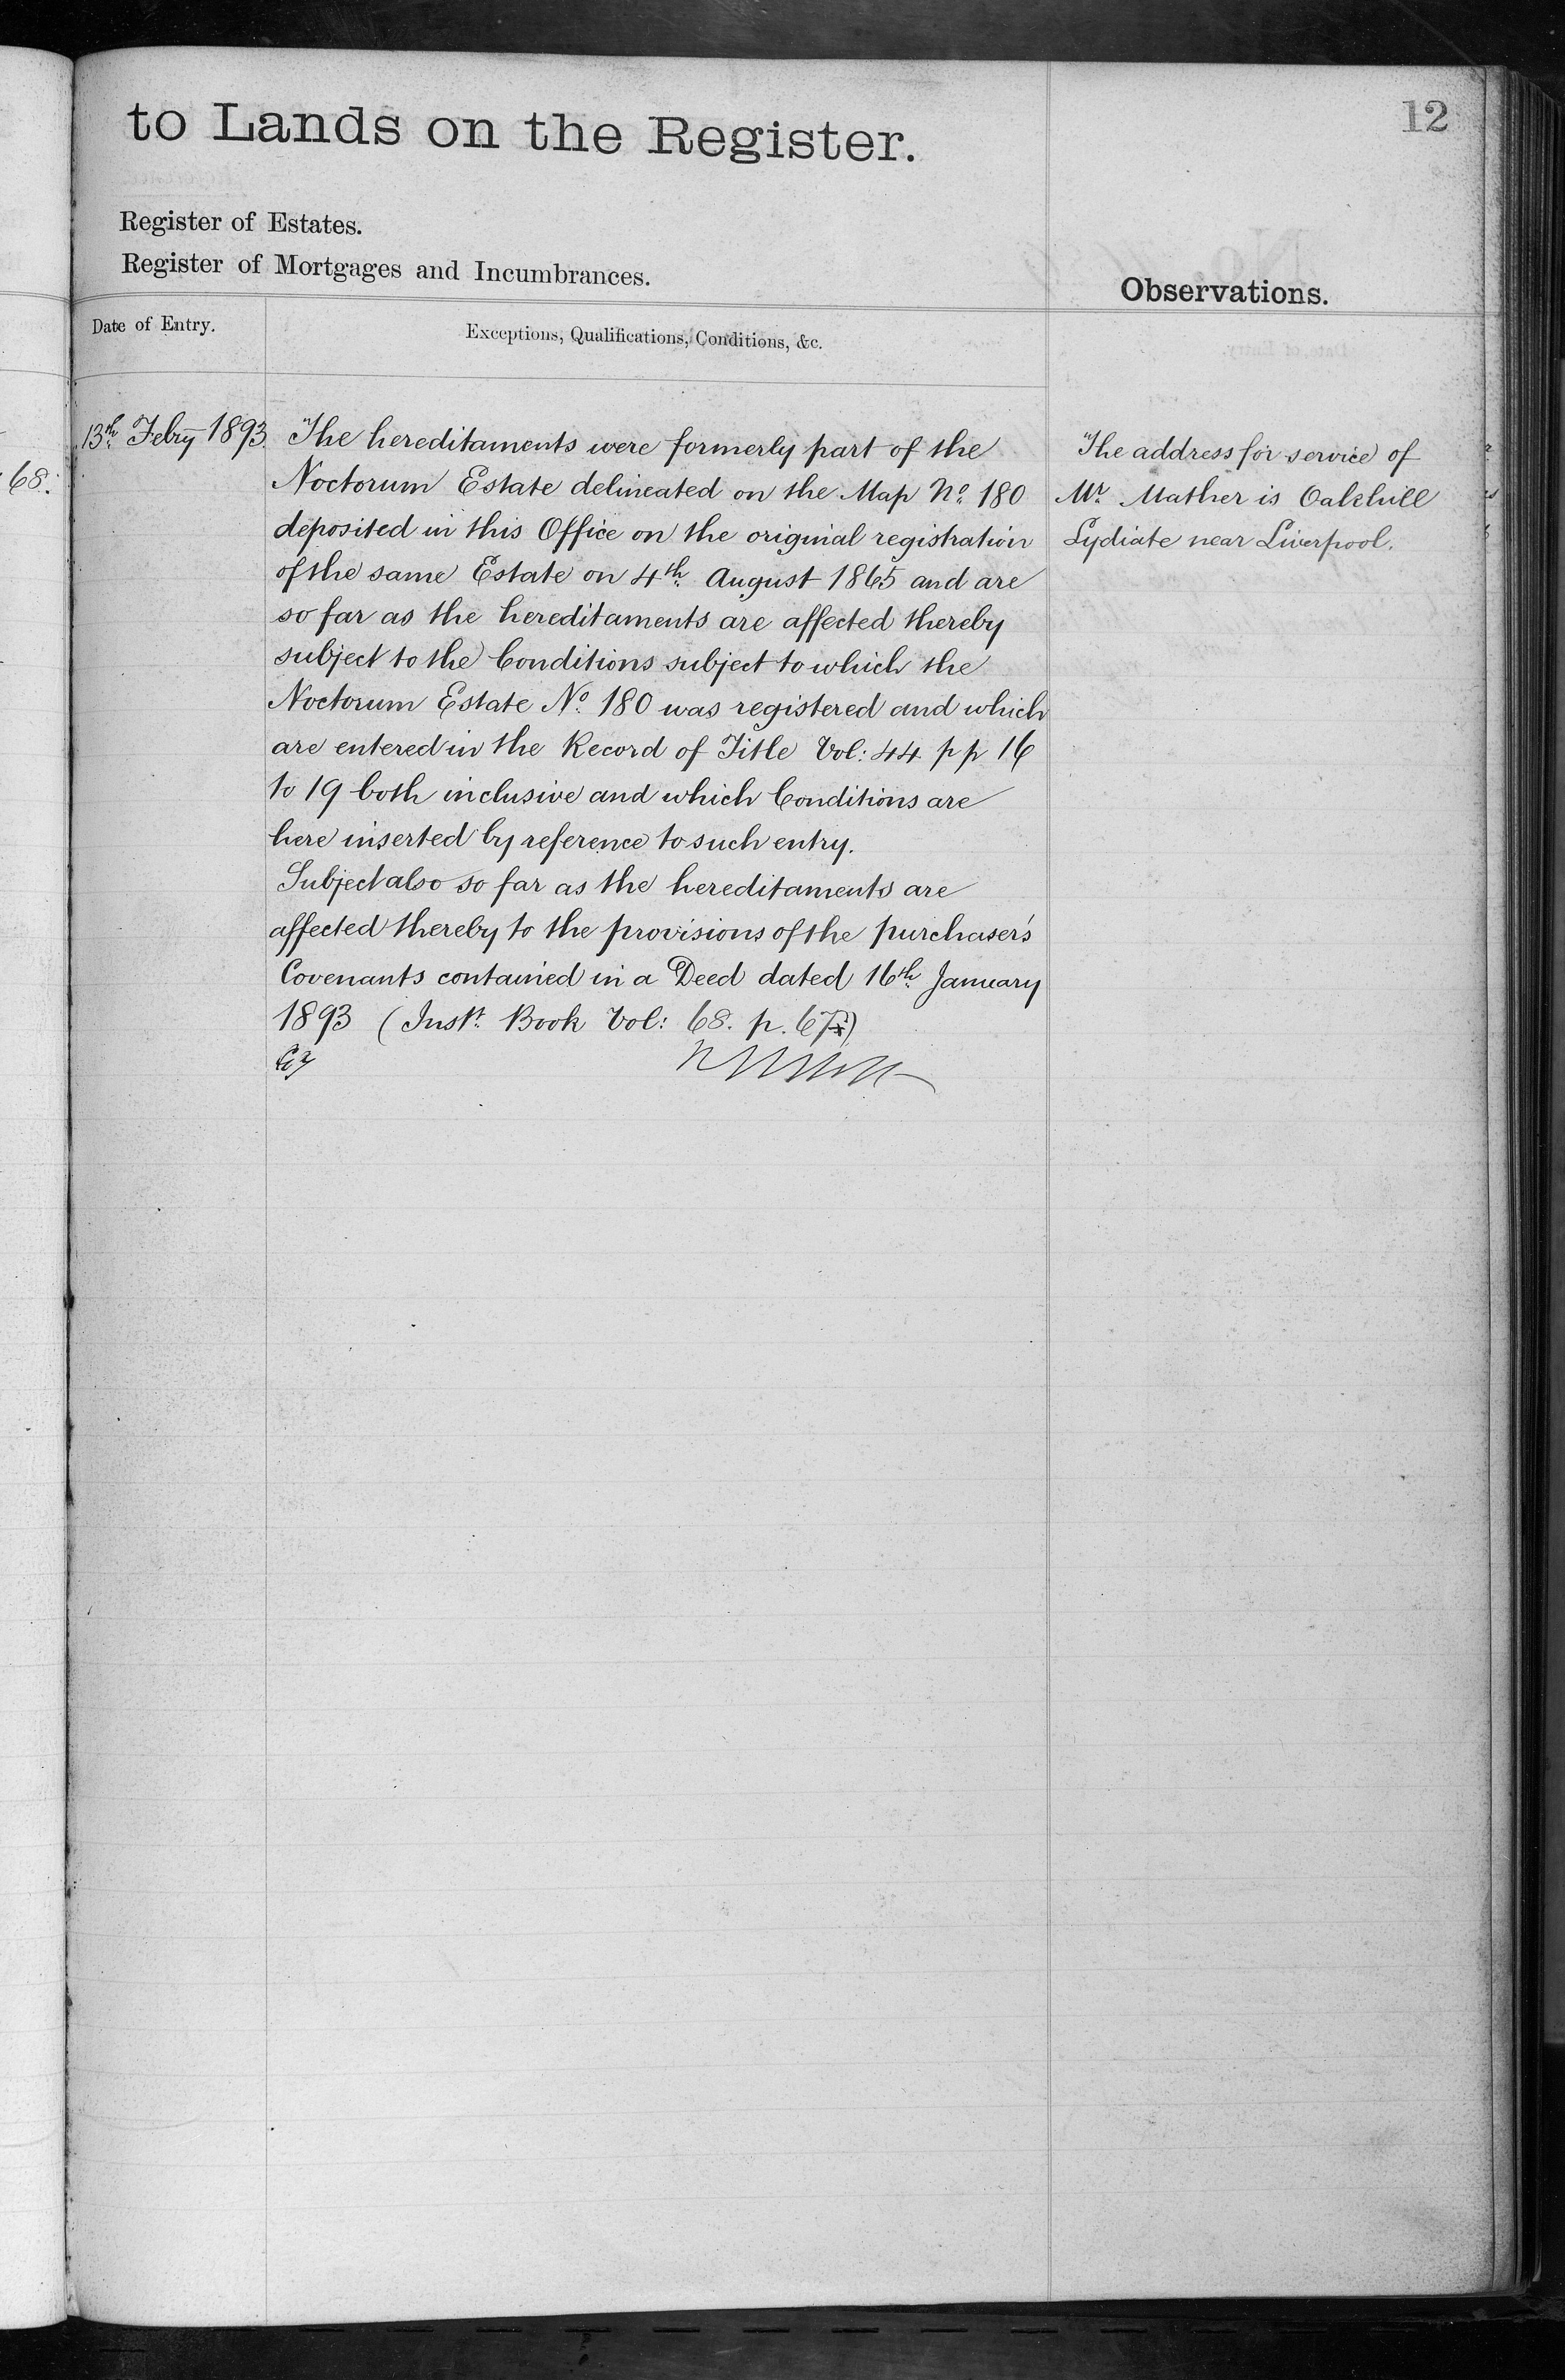 12
to Lands on the Register.
Register of Estates.
Register of Mortgages and Incumbrances.
Observations.
Date of Entry.
Exceptions, Qualifications, Conditions, &c.
68.
13th Febry 1893
The hereditaments were formerly part of the
Noctorum Estate delineated on the Map No. 180
deposited in this Office on the original registration
of the same Estate on 4th August 1865 and are
so far as the hereditaments are affected thereby
subject to the Conditions subject to which the
Noctorum Estate No. 180 was registered and which
are entered in the Record of Title Vol: 44 pp 16
to 19 both inclusive and which Conditions are
here inserted by reference to such entry.
Subject also so far as the hereditaments are
affected thereby to the provisions of the purchaser's
Covenants contained in a Deed dated 16th January
1893 (Inst. Book Vol: 68. p.
The address for service of
Mr. Mather is Oakhill
Lydiate near Liverpool.